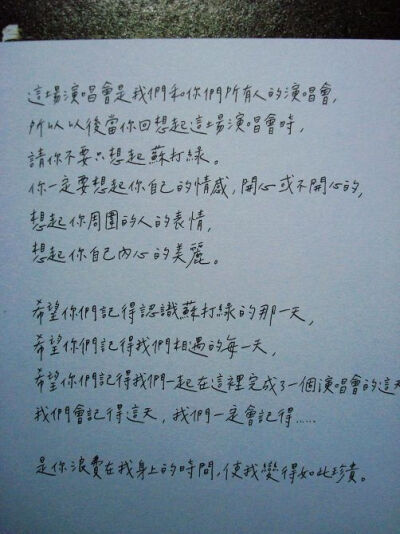 這場演唱會是我們和你們所有人的演唱會,
所以以後當你回想起這場演唱會時,
請你不要只想起蘇打綠。
你一定要想起你自己的情感, 開心或不開心的,
想起你周圍的人的表情,
想起你自己內心的美麗。
希望你們記得認識蘇打綠的那一天,
希望你們記得我們相遇的每一天,
希望你們記得我們一起在這裡完成了一個演唱會的這天
我們會記得這天, 我們一定會記得……
是你浪費在我身上的時間, 使我變得如此珍貴。